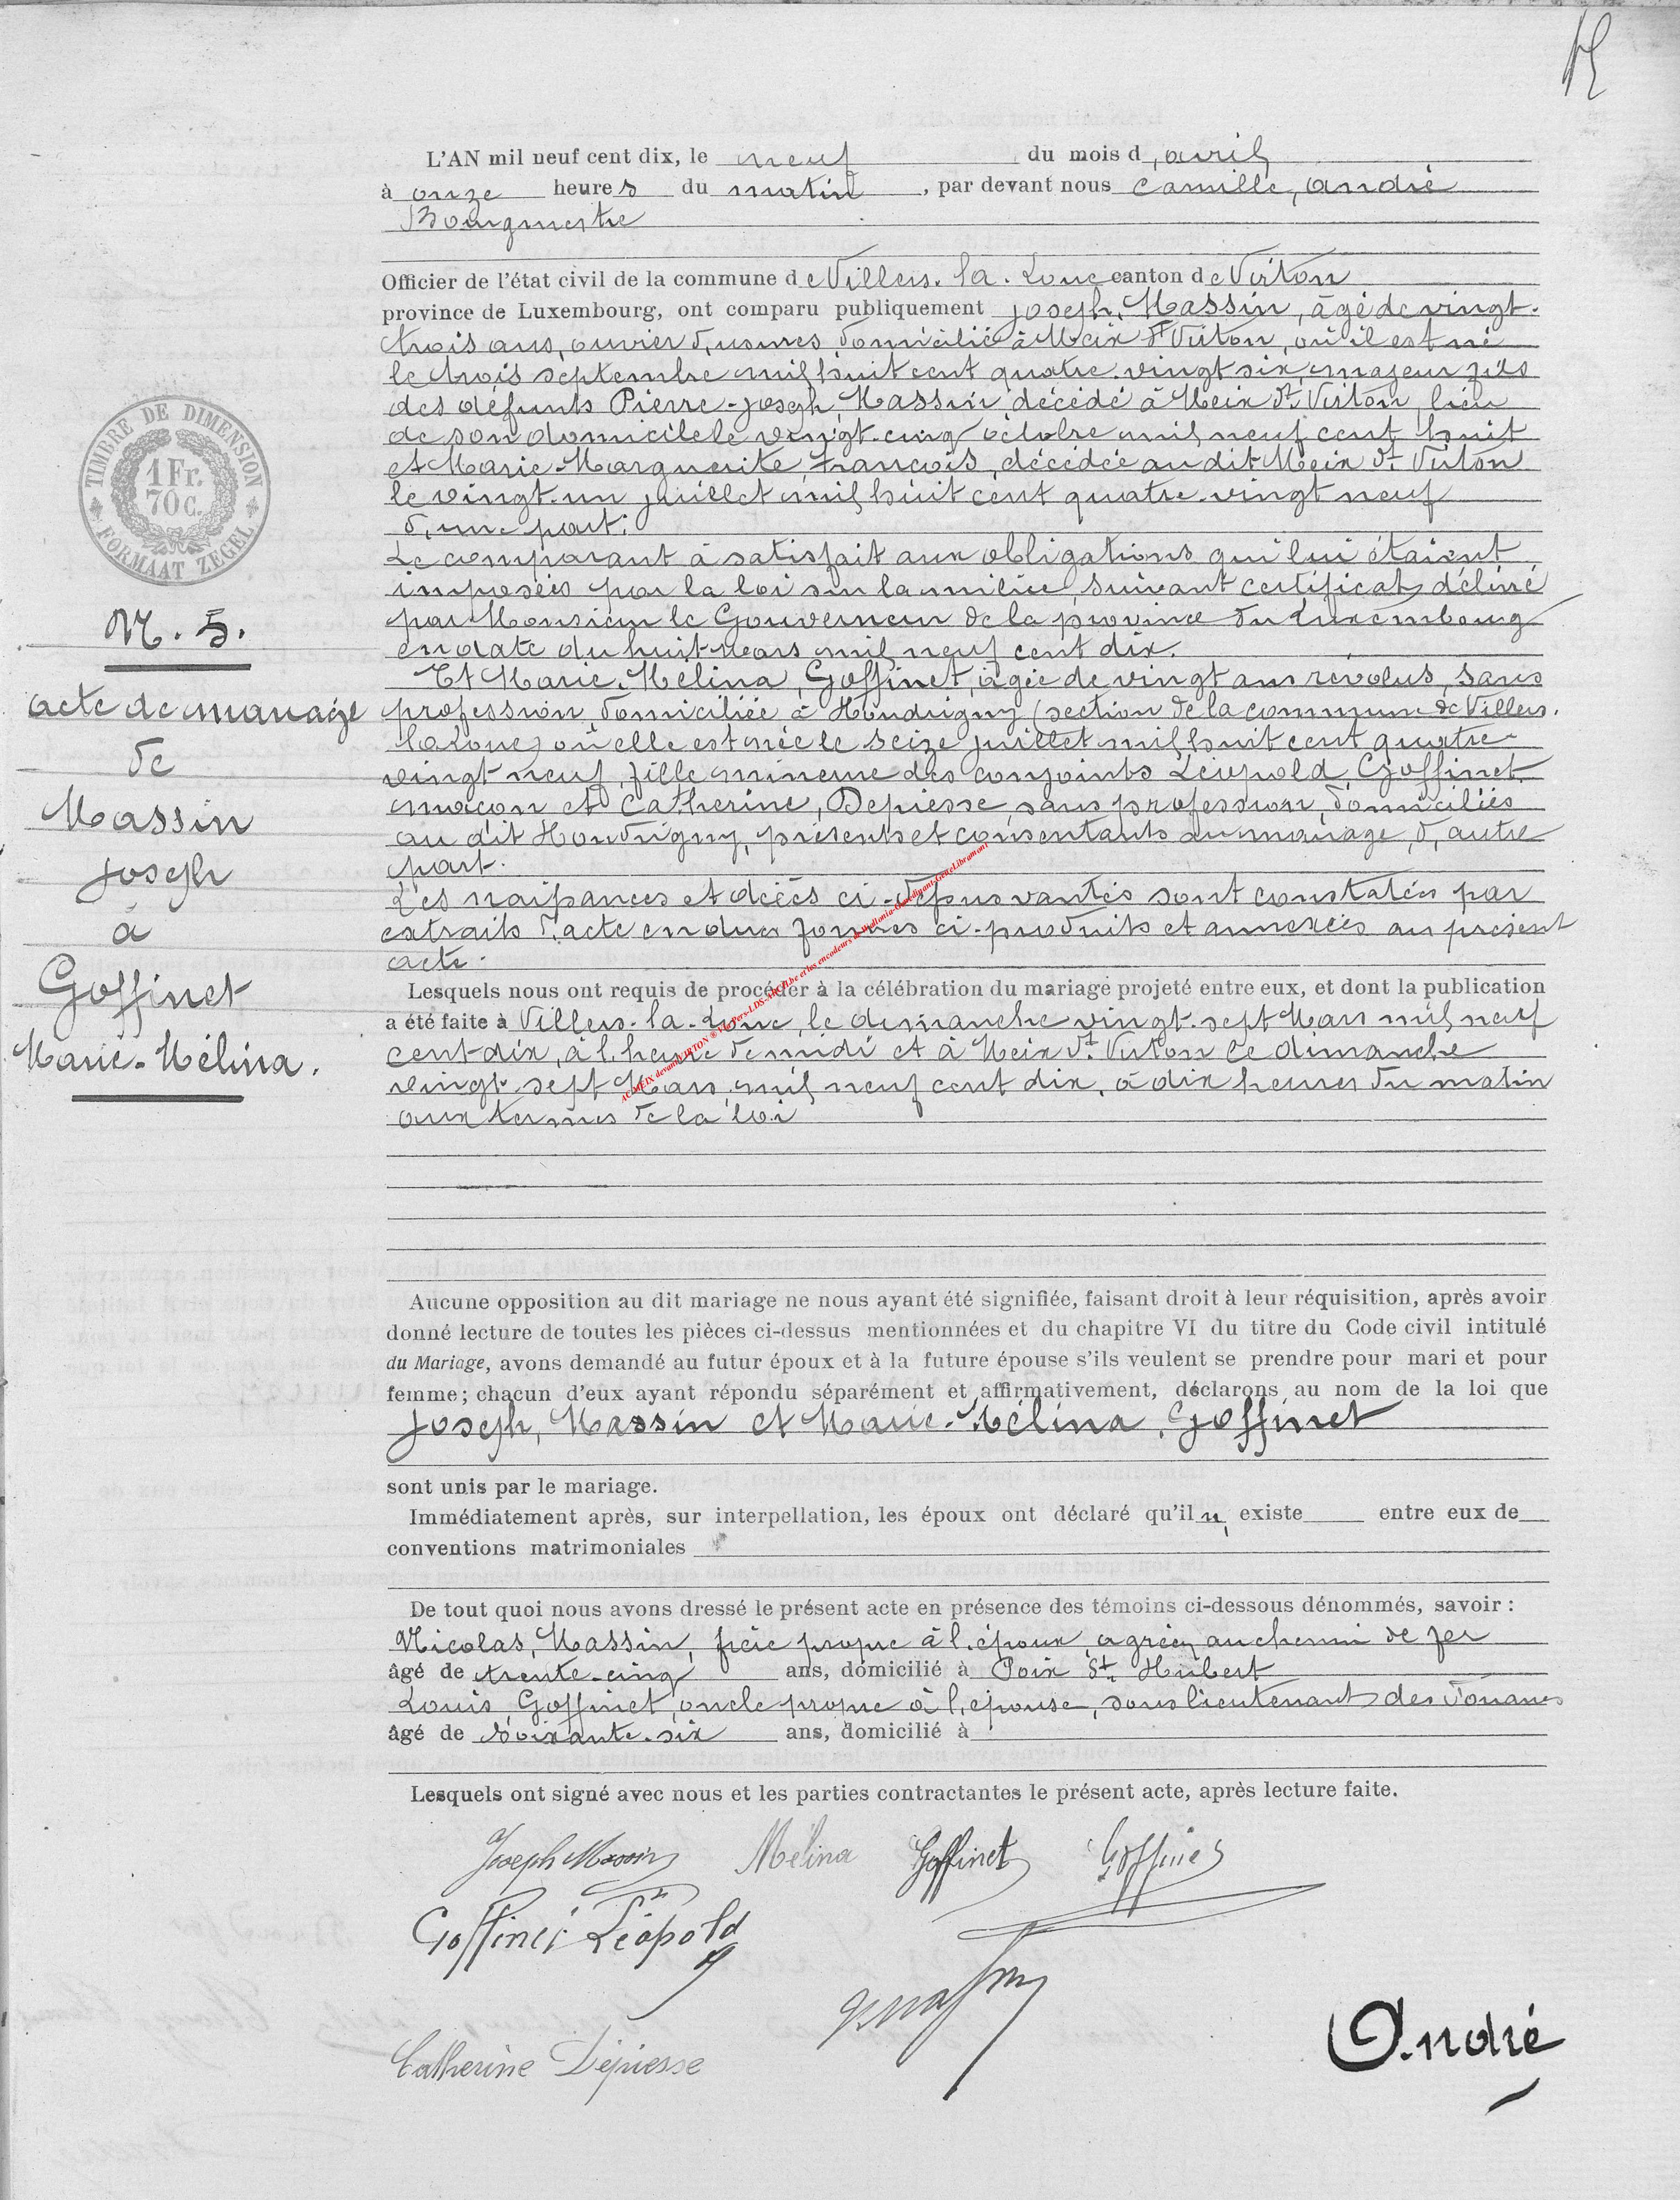 L'AN mil neuf cent dix, le neuf du mois d, avril
à onze heures du matin, par devant nous Camille, André
Bourgmestre
Officier de l'état civil de la commune de Villers-la-Loue canton de Virton
province de Luxembourg, ont comparu publiquement Joseph, Massin, âgé de vingt-
trois ans, ouvrier d'usines, domicilié à Meix dt Virton, où il est né
le trois septembre mil huit cent quatre-vingt six, majeur fils
des défunts Pierre-Joseph, Massin, décédé à Meix dt Virton, lieu
de son domicile le vingt-cinq octobre mil neuf cent huit
et Marie-Marguerite, François, décédée au dit Meix dt Virton
le vingt-un juillet mil huit cent quatre-vingt neuf
d'une part.
Le comparant à satisfait aux obligations qui lui étaient
imposées par la loi sur la milice, suivant certificat délivré
par Monsieur le Gouverneur de la province du Luxembourg
en date du huit Mars mil neuf cent dix.
Et Marie-Mélina, Goffinet, âgée de vingt ans révolus, sans
profession, domiciliée à Houdrigny (section de la commune de Villers-
la-Loue) où elle est née le seize juillet mil huit cent quatre-
vingt neuf, fille mineure des conjoints Léopold, Goffinet
maçon et Catherine, Depiesse, sans profession, domiciliés
au dit Houdrigny, présents et consentants au mariage, d'autre
part.
Les naissances et décès ci-dessus vantés sont constatés par
extraits d'acte en dues formes ci-produits et annexées au présent
acte.
Lesquels nous ont requis de procéder à la célébration du mariage projeté entre eux, et dont la publication
a été faite à Villers-la-Loue, le dimanche vingt-sept Mars mil neuf
cent dix, à l'heure de midi et à Meix dt Virton le dimanche
vingt-sept Mars, mil neuf cent dix, à dix heures du matin
aux termes de la loi
Aucune opposition au dit mariage ne nous ayant été signifiée, faisant droit à leur réquisition, après avoir
donné lecture de toutes les pièces ci-dessus mentionnées et du chapitre VI du titre du Code civil intitulé
du Mariage, avons demandé au futur époux et à la future épouse s'ils veulent se prendre pour mari et pour
femme; chacun d'eux ayant répondu séparément et affirmativement, déclarons au nom de la loi que
Joseph, Massin et Marie-Mélina, Goffinet
sont unis par le mariage.
Immédiatement après, sur interpellation, les époux ont déclaré qu'il n' existe entre eux de
conventions matrimoniales
De tout quoi nous avons dressé le présent acte en présence des témoins ci-dessous dénommés, savoir :
Nicolas, Massin, frère propre à l'époux, agréé au chemin de fer
âgé de trente-cinq ans, domicilié à Poix St Hubert
Louis, Goffinet, oncle propre à l'épouse, sous lieutenant des douanes
âgé de soixante-six ans, domicilié à
Lesquels ont signé avec nous et les parties contractantes le présent acte, après lecture faite.
Joseph Massin Mélina Goffinet Goffinet
Goffinet Léopold
Catherine Depiesse
André
TIMBRE DE DIMENSION
1 Fr.
70 c.
FORMAAT ZEGEL
N. 5.
acte de mariage
de
Massin
Joseph
à
Goffinet
Marie-Mélina.